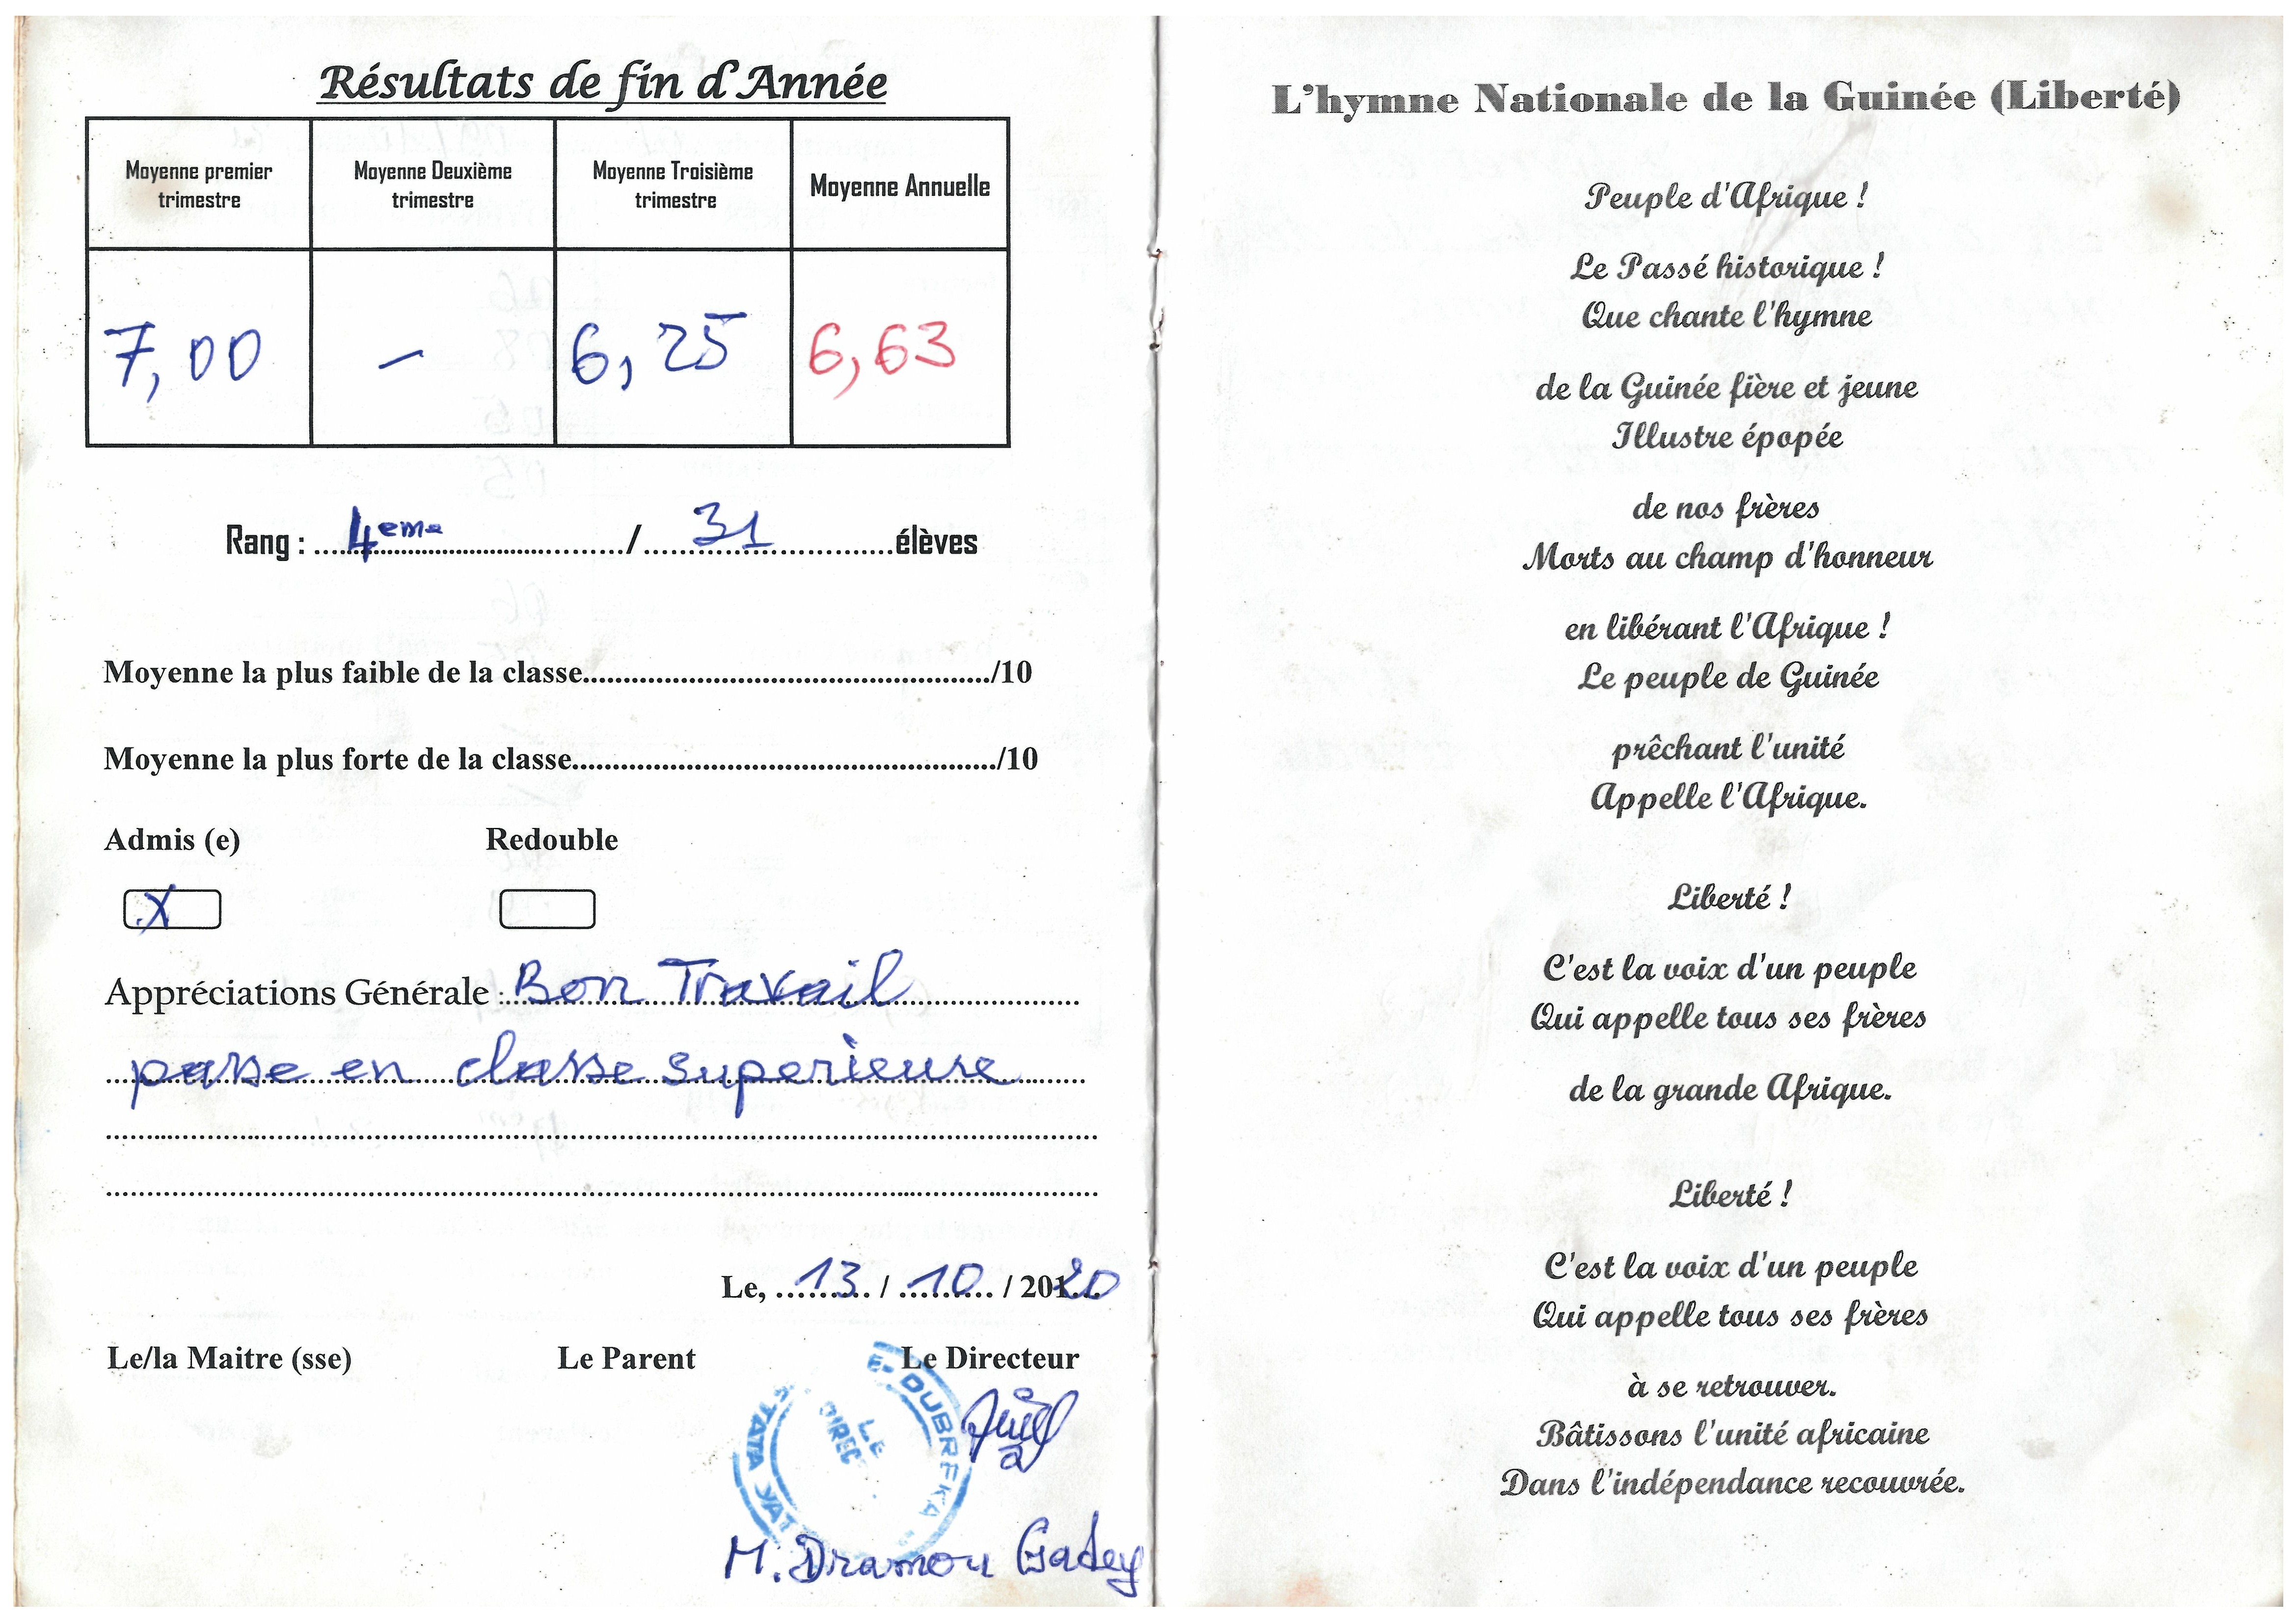 Résultats de fin d'Année
Moyenne premier trimestre
Moyenne Deuxième trimestre
Moyenne Troisième trimestre
Moyenne Annuelle
7,00 - 6,25 6,63
Rang : 4eme / 31 élèves
Moyenne la plus faible de la classe............/10
Moyenne la plus forte de la classe............/10
Admis (e) Redouble
X
Appréciations Générale : Bon Travail
passe en classe superieure
Le, 13 / 10 / 20120
Le/la Maitre (sse) Le Parent Le Directeur
E. DUBREKA
LE
DIREC
TATA
M. Dramou Gadey
L'hymne Nationale de la Guinée (Liberté)
Peuple d'Afrique !
Le Passé historique !
Que chante l'hymne
de la Guinée fière et jeune
Illustre épopée
de nos frères
Morts au champ d'honneur
en libérant l'Afrique !
Le peuple de Guinée
prêchant l'unité
Appelle l'Afrique.
Liberté !
C'est la voix d'un peuple
Qui appelle tous ses frères
de la grande Afrique.
Liberté !
C'est la voix d'un peuple
Qui appelle tous ses frères
à se retrouver.
Bâtissons l'unité africaine
Dans l'indépendance recouvrée.